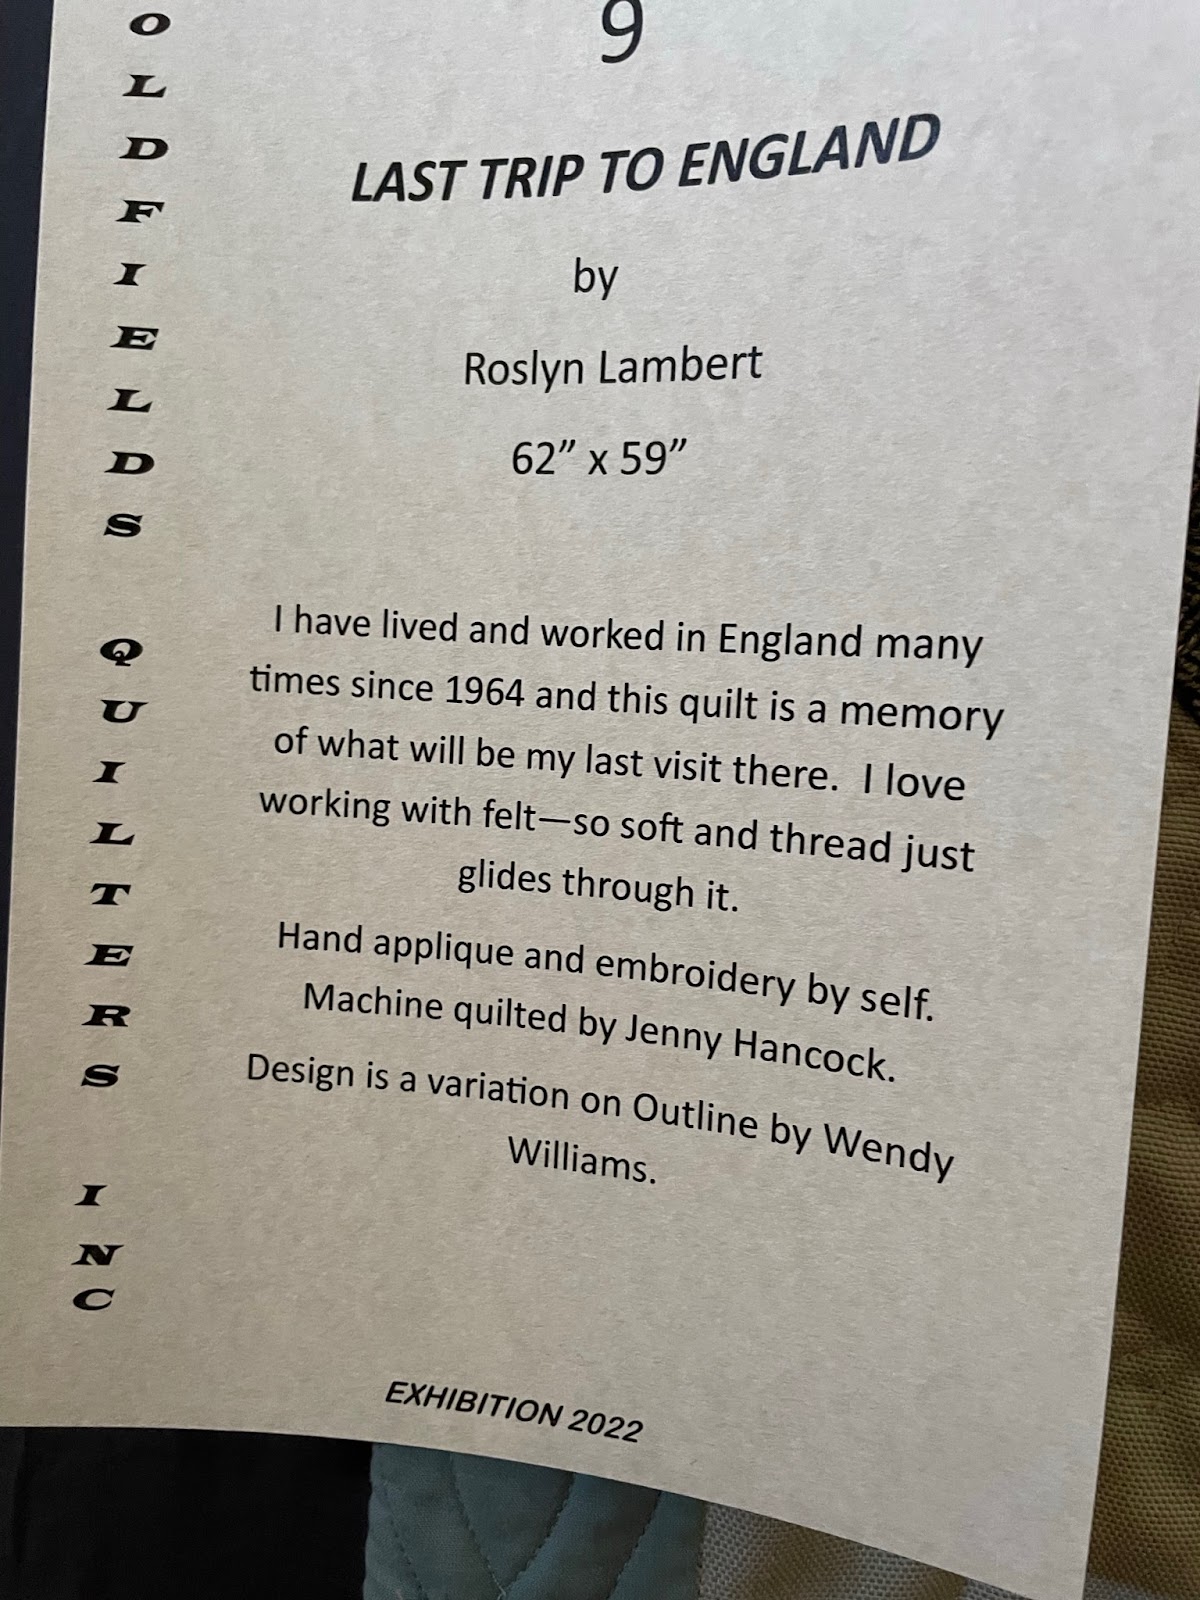 OLDFIELDS QUILTERS INC
9
LAST TRIP TO ENGLAND
by
Roslyn Lambert
62” x 59”
I have lived and worked in England many
times since 1964 and this quilt is a memory
of what will be my last visit there.  I love
working with felt—so soft and thread just
glides through it.
Hand applique and embroidery by self.
Machine quilted by Jenny Hancock.
Design is a variation on Outline by Wendy
Williams.
EXHIBITION 2022